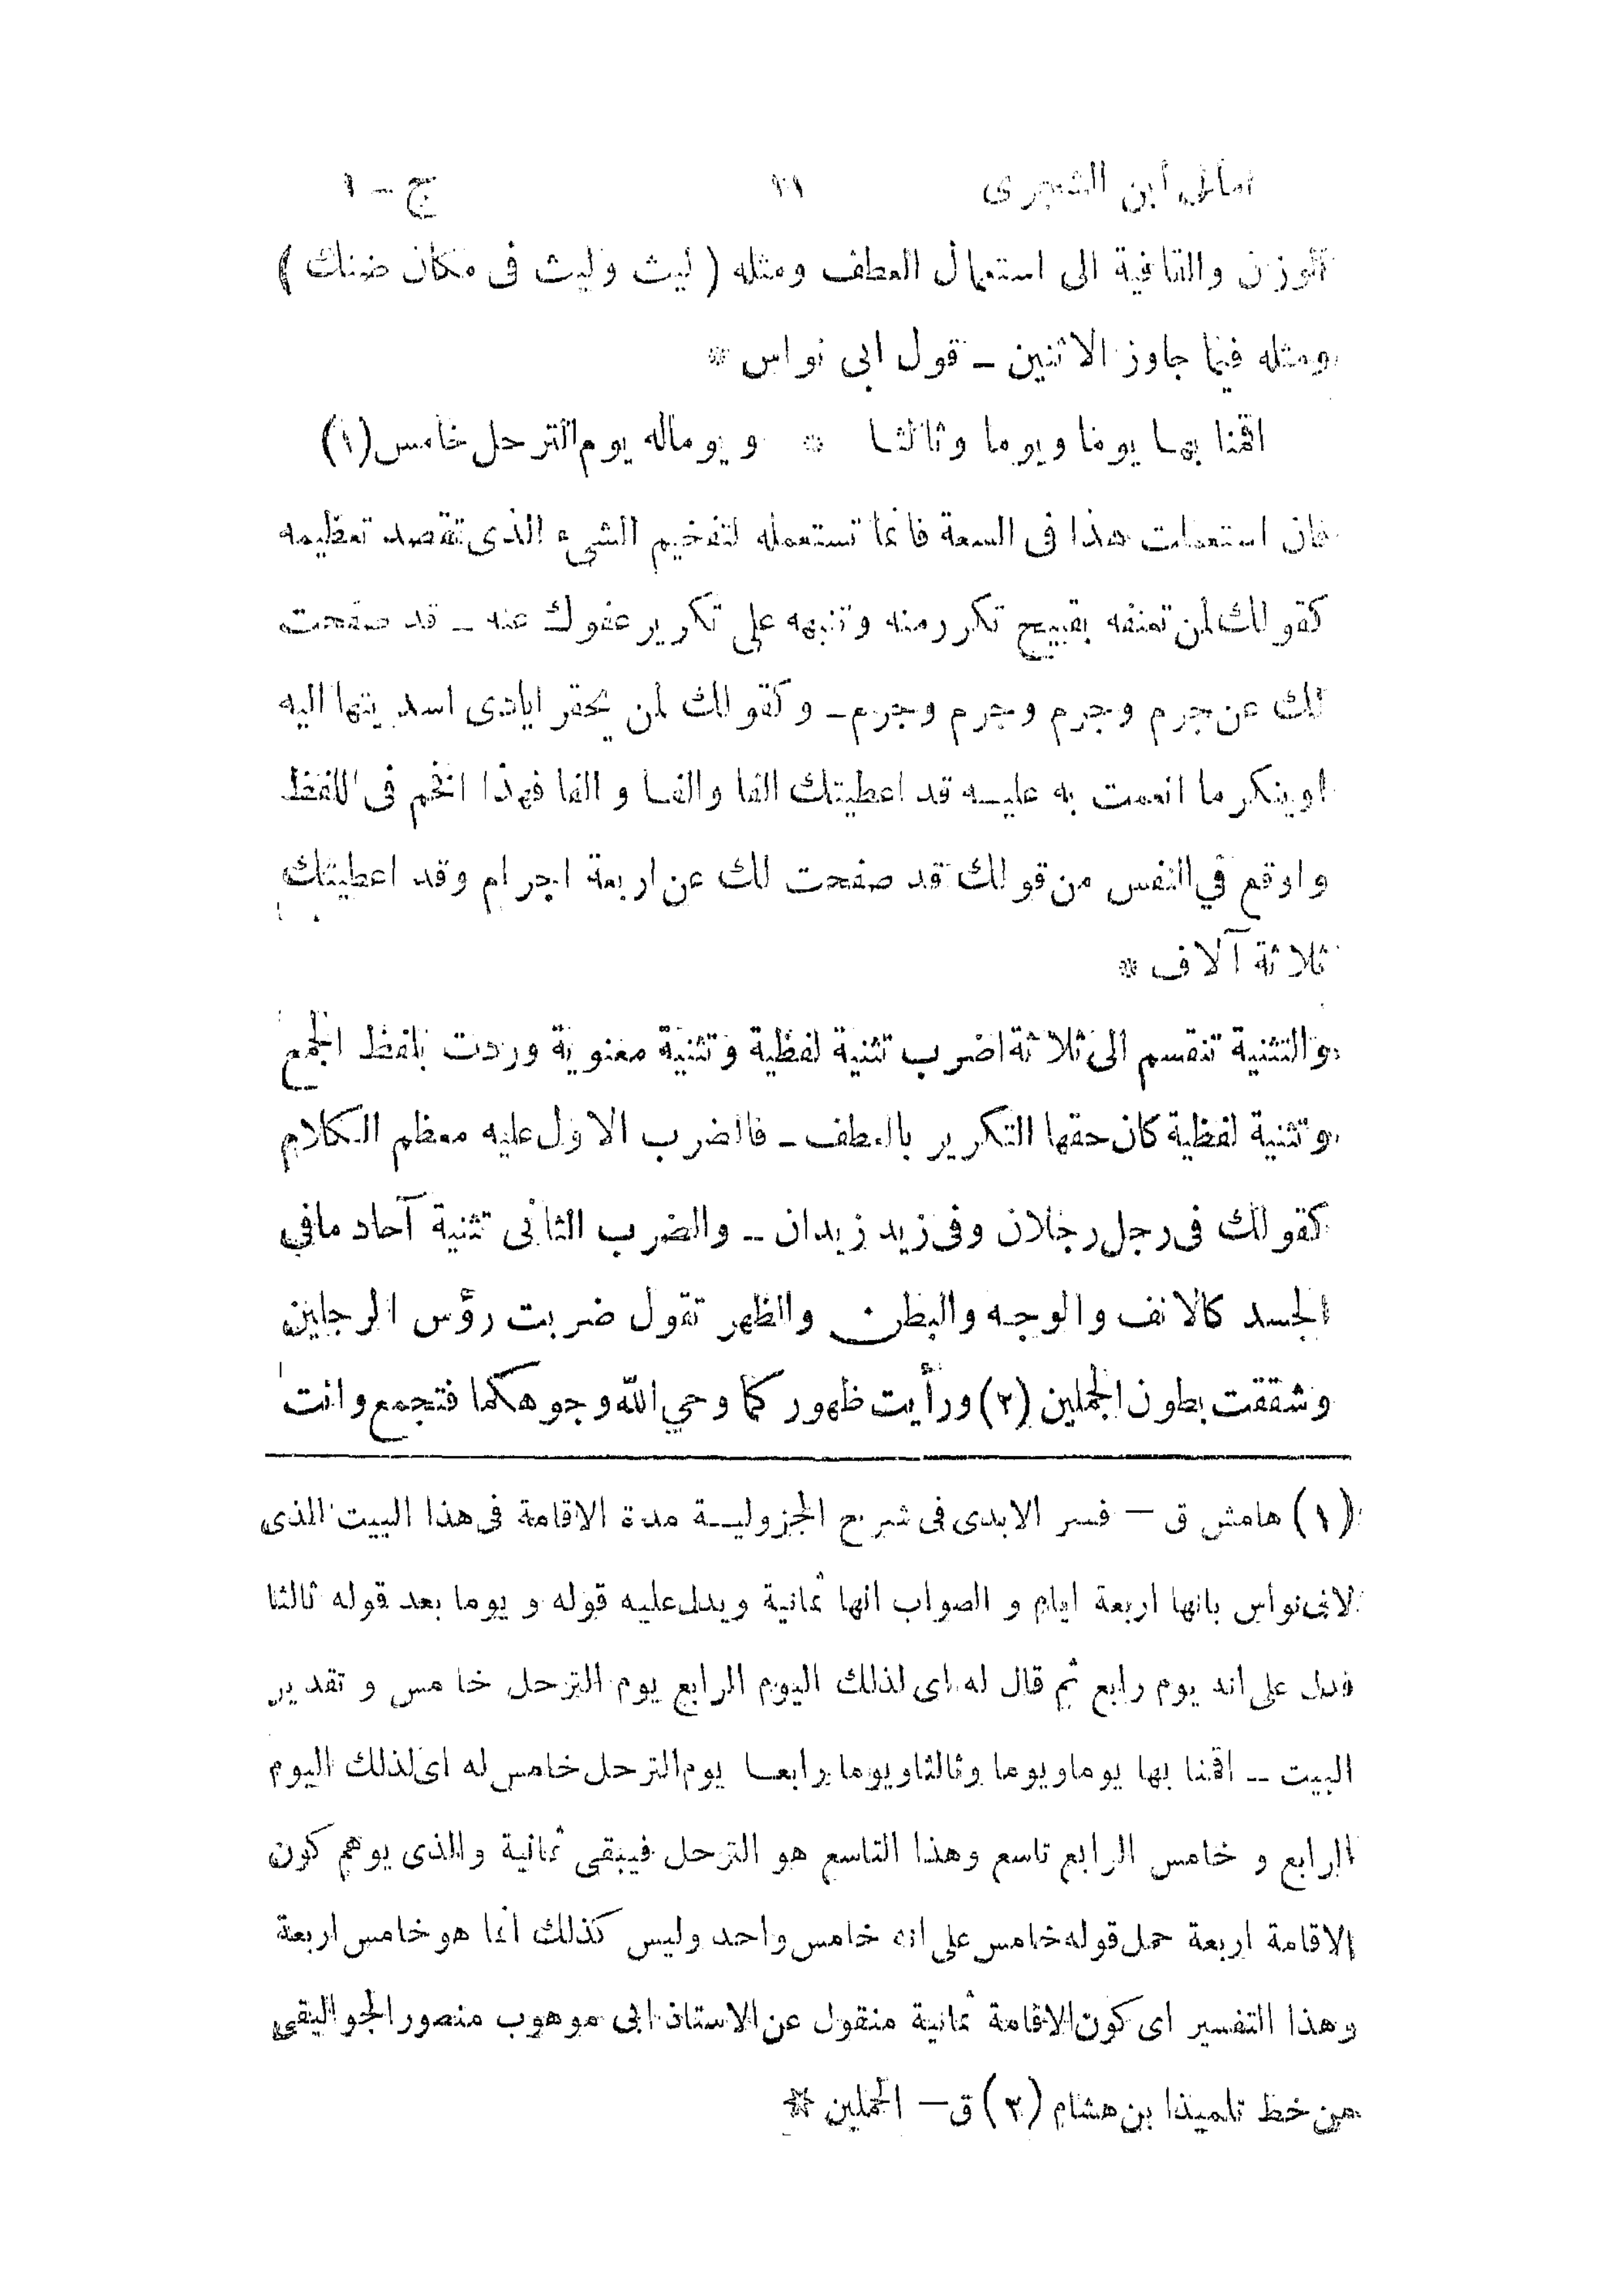 امالى ابن الشجرى ١١ ج – ١
الوزن والقافية الى استعمال العطف ومثله ( ليث وليث فى مكان ضنك )
ومثله فيما جاوز الاثنين ــ قول ابى نواس *
اقمنا بها يوما ويوما وثالثا * ويوماله يوم الترحل خامس (١)
فان استعملت هذا فى السعة فانما تستعمله لتفخيم الشىء الذى تقصد تعظيمه
كقولك لمن تعنفه بقبيح تكرر منه وتنبهه على تكرير عفوك عنه ــ قد صفحت
لك عن جرم وجرم وجرم وجرم ــ وكقولك لمن يحقر ايادى اسديتها اليه
اوينكر ما انعمت به عليه قد اعطيتك الفا والفا والفا فهذا افخم فى اللفظ
واوقع في النفس من قولك قد صفحت لك عن اربعة اجرام وقد اعطيتك
ثلاثة آلاف *
والتثنية تنقسم الى ثلاثة اضرب تثنية لفظية وتثنية معنوية وردت بلفظ الجمع
وتثنية لفظية كان حقها التكرير بالعطف ــ فالضرب الاول عليه معظم الكلام
كقولك فى رجل رجلان وفى زيد زيدان ــ والضرب الثانى تثنية آحاد مافي
الجسد كالانف والوجه والبطن والظهر تقول ضربت رؤس الرجلين
وشققت بطون الجملين (٢) ورأيت ظهوركما وحي الله وجوهكما فتجمع وانت
(١) هامش ق – فسر الابدى فى شرح الجزولية مدة الاقامة فى هذا البيت الذى
لابى نواس بانها اربعة ايام و الصواب انها ثمانية ويدل عليه قوله و يوما بعد قوله ثالثا
فدل على انه يوم رابع ثم قال له اى لذلك اليوم الرابع يوم الترحل خامس و تقدير
البيت ــ اقمنا بها يوما ويوما وثالثا ويوما رابعا يوم الترحل خامس له اى لذلك اليوم
الرابع و خامس الرابع تاسع وهذا التاسع هو الترحل فيبقى ثمانية والذى يوهم كون
الاقامة اربعة حمل قوله خامس على انه خامس واحد وليس كذلك انما هو خامس اربعة
وهذا التفسير اى كون الاقامة ثمانية منقول عن الاستاذ ابى موهوب منصور الجواليقى
من خط تلميذا بن هشام (٢) ق – الحملين *